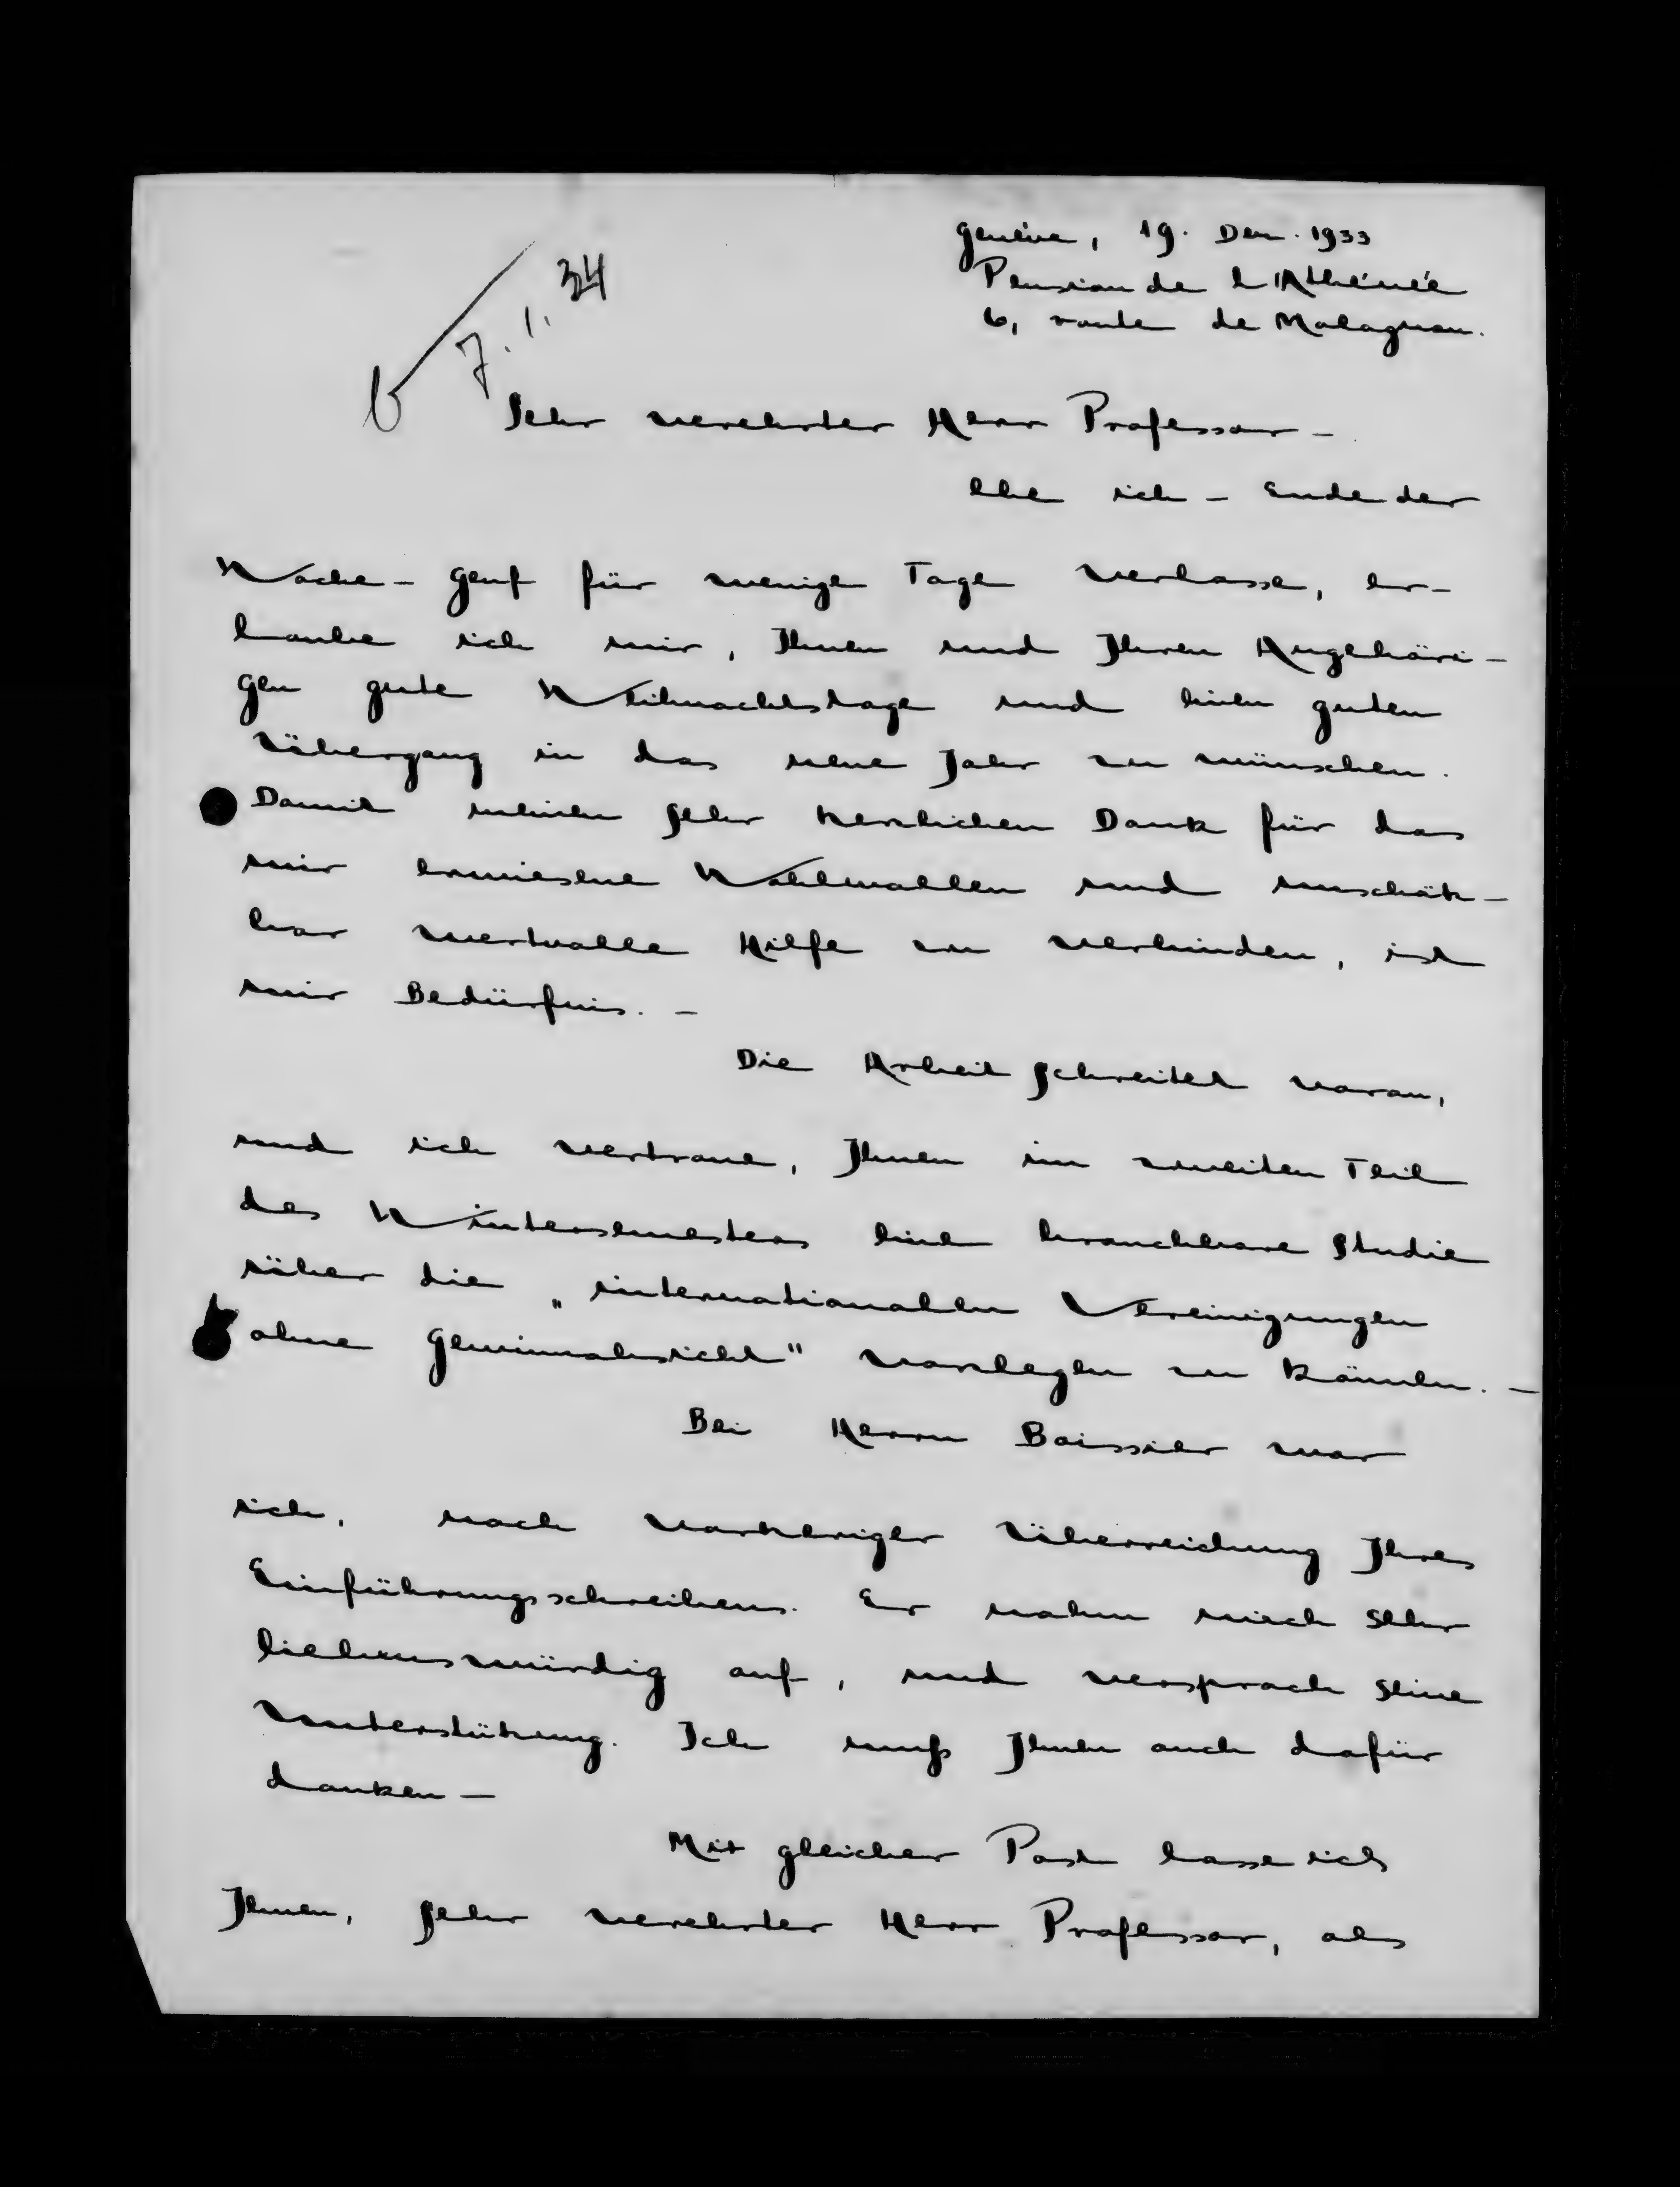 Genève, 19. Dez. 1933
Pension de l'Athénée
6, route de Malagnou.
7. 1. 34
Sehr verehrter Herr Professor –
ehe ich – Ende der
Woche – Genf für wenige Tage verlasse, er-
laube ich mir, Ihnen und Ihren Angehöri-
gen gute Weihnachtstage und einen guten
Übergang in das neue Jahr zu wünschen.
Damit meinen sehr herzlichen Dank für das
mir erwiesene Wohlwollen und unschätz-
bar wertvolle Hilfe zu verbinden, ist
mir Bedürfnis. –
Die Arbeit schreitet voran,
und ich vertraue, Ihnen im zweiten Teil
des Wintersemesters eine brauchbare Studie
über die „internationalen Vereinigungen
ohne Gewinnabsicht" vorlegen zu können. –
Bei Herrn Boissier war
ich, nach vorheriger Überreichung Ihres
Einführungsschreibens. Er nahm mich sehr
liebenswürdig auf, und versprach seine
Unterstützung. Ich muß Ihnen auch dafür
danken –
Mit gleicher Post lasse ich
Ihnen, sehr verehrter Herr Professor, als